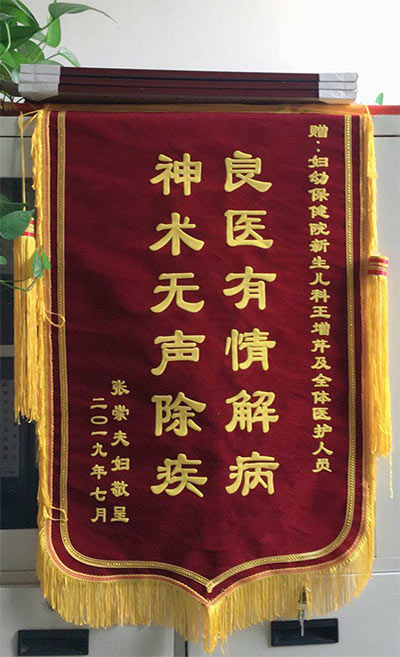 赠：妇幼保健院新生儿科王增芹及全体医护人员
良医有情解病
神术无声除疾
张崇夫妇敬呈
二〇一九年七月